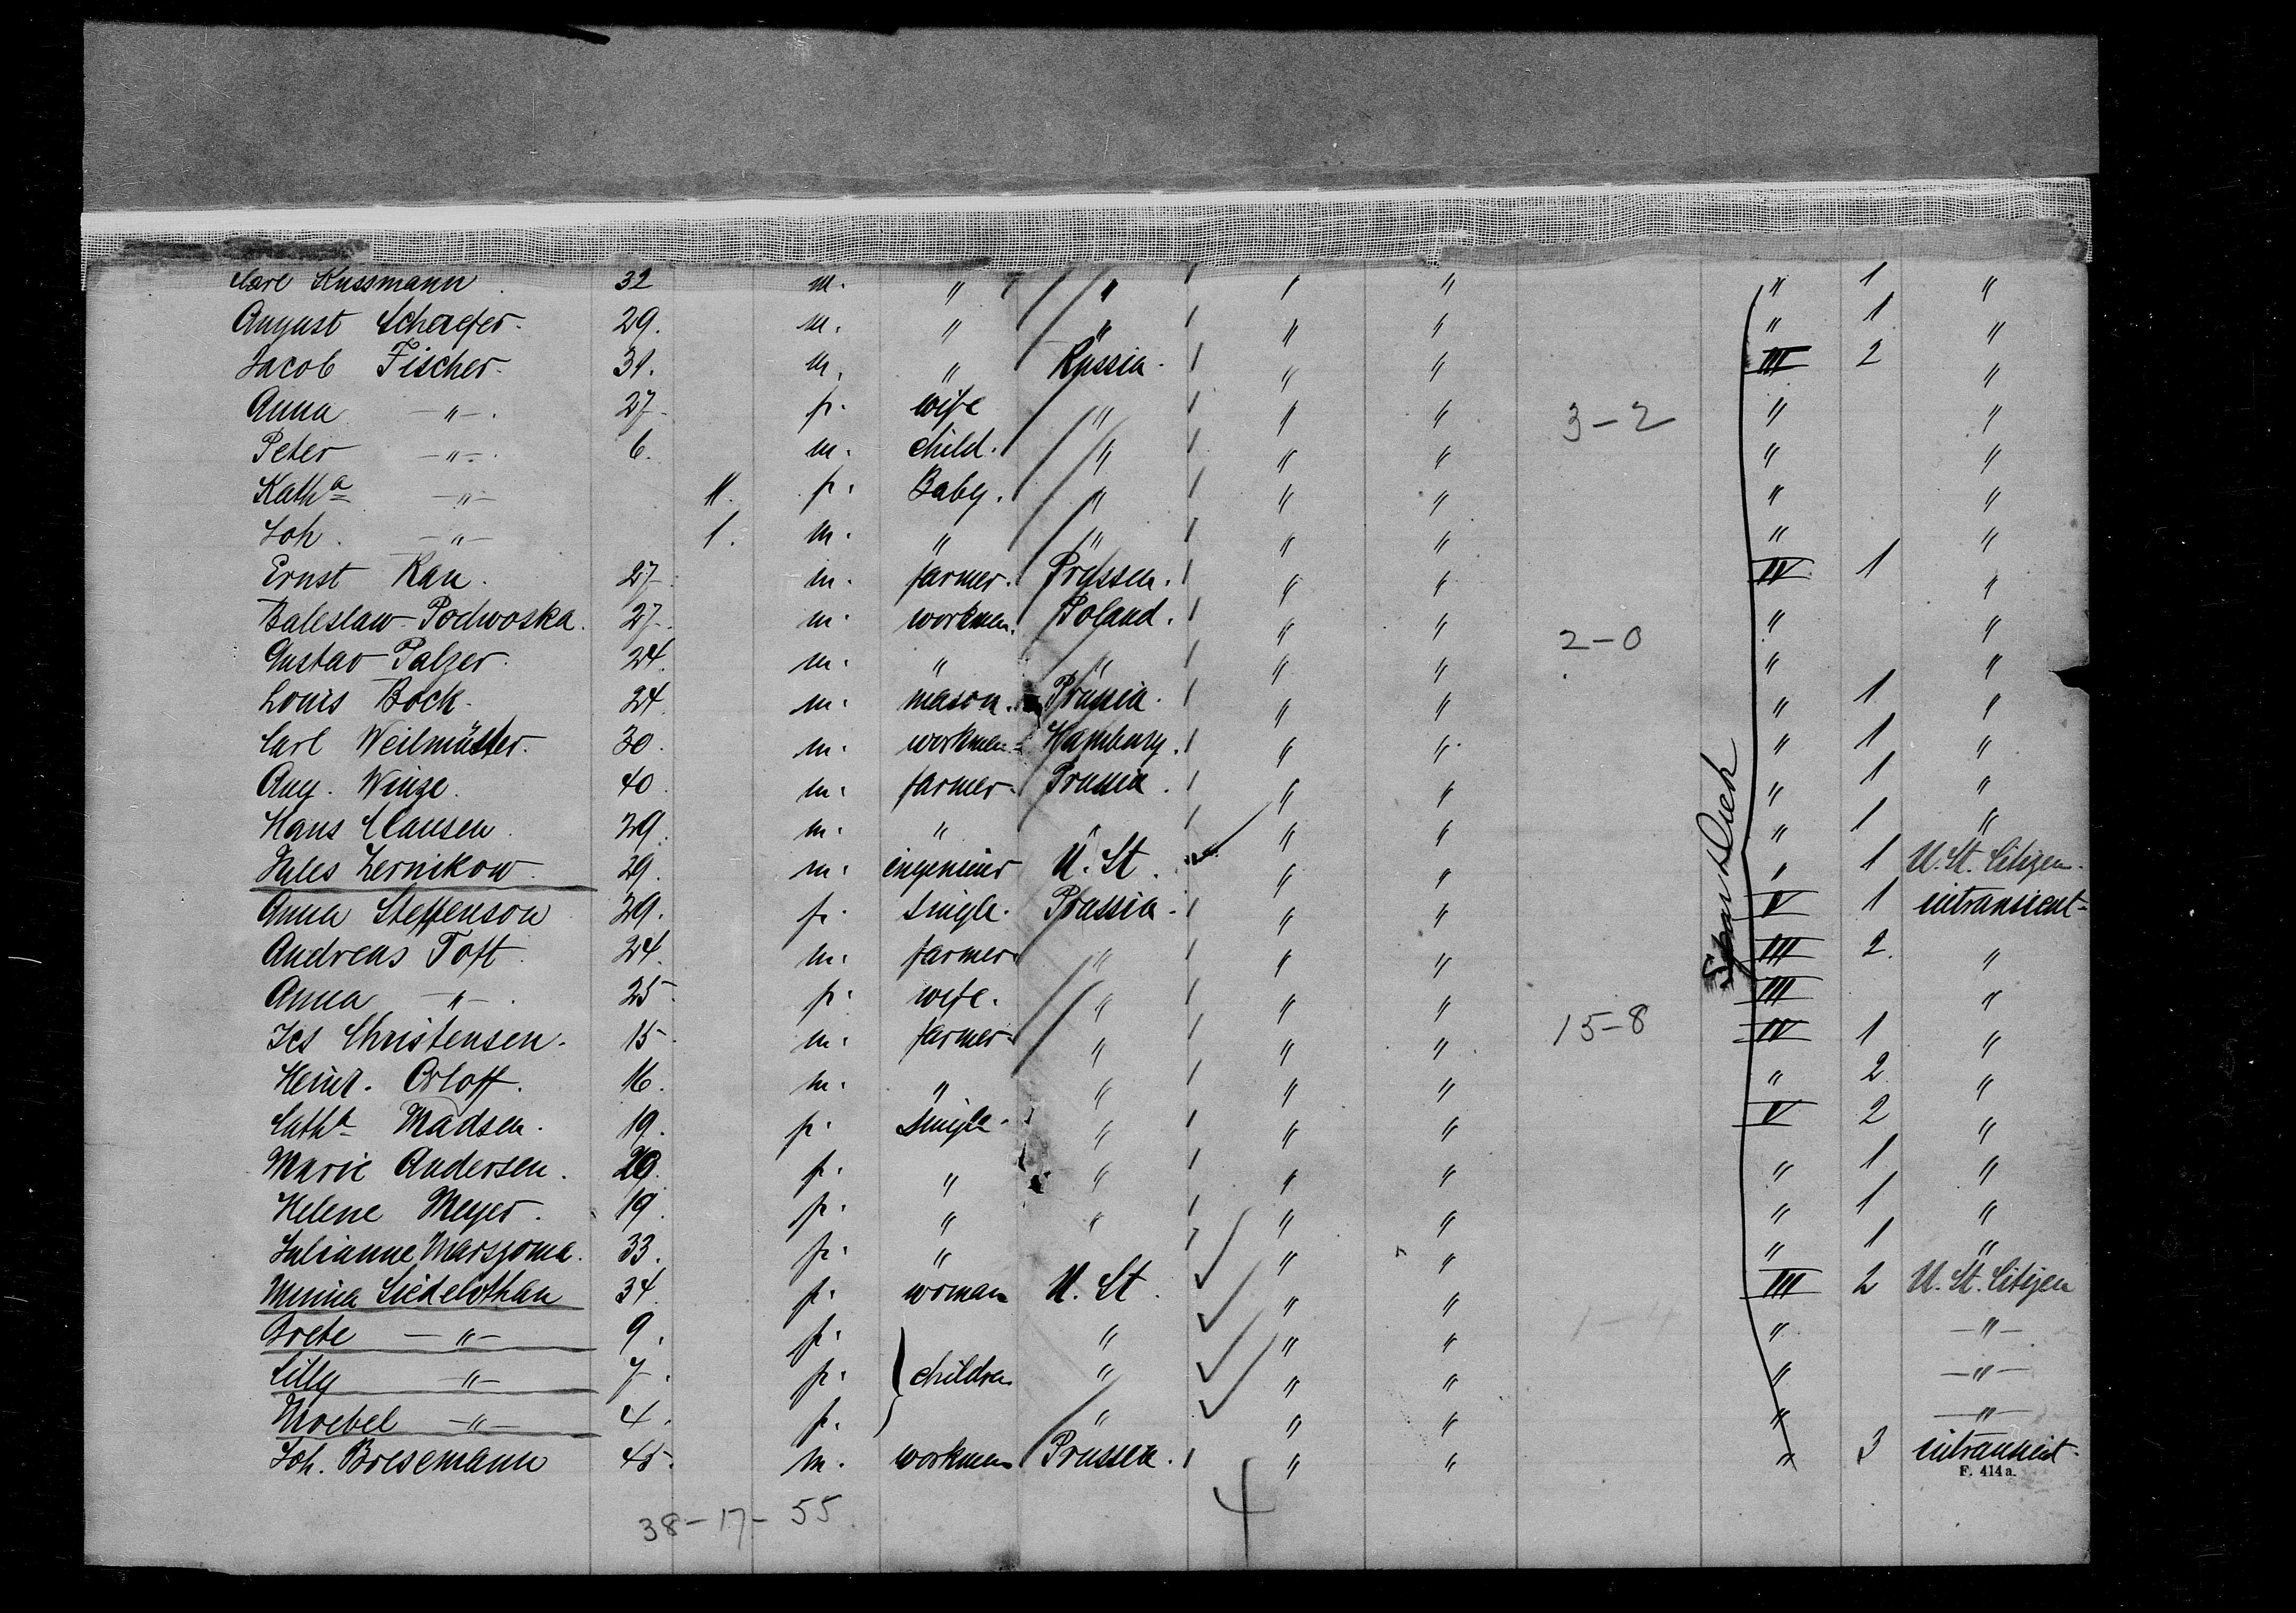 Carl Kussmann 32 m. " " " " " 1 "
August Schaefer. 29. m. " " " " " 1 "
Jacob Fischer. 31. m. " Russia. " " III 2 "
Anna —"—. 27. f. wife " " " 3-2 " "
Peter —"—. 6. m. child. " " " " "
Kath<u>a</u> —"— 11. f. Baby. " " " " "
Joh. —"— 1. m. " " " " " "
Ernst Rau. 27. m. farmer. Prussen. " " IV 1 "
Baleslaw Podwoska. 27. m. workmen. Poland. " " 2-0 " "
Gustav Palzer. 24. m. " " " " " "
Louis Bock. 24. m. mason. Prussia. " " " 1 "
Carl Weilmüster. 30. m. workmen Hamburg. " " " 1 "
Aug. Winze. 40. m. farmer. Prussia. " " " 1 "
Hans Clausen. 29. m. " " " " " 1 "
Jules Zernikow. 29. m. ingenieur U. St. " " " 1 U. St. Citizen.
Anna Steffenson 29. f. single. Prussia. " " V 1 intransient.
Andreas Toft. 24. m. farmer. " " " III 2. "
Anna —"—. 25. f. wife. " " " III "
Jes Christensen. 15. m. farmer. " " " 15-8 IV 1 "
Heinr. Orloff. 16. m. " " " " " 2 "
Cath<u>a</u> Madsen. 19. f. single. " " " V 2 "
Marie Andersen. 20. f. " " " " " 1 "
Helene Meyer. 19. f. " " " " " 1 "
Julianne Marszoma. 33. f. " " " " 1 "
Minna 34. f. woman U. St. " " III 2 U. St. Citizen
—"— 9. f. " " " 1-4 " —"—
Lilly —"— 7. f. children " " " " —"—
—"— 4. f. " " " " —"—
Joh. Bresemann 45. m. workmen Prussen. " " " 3 intransient.
F. 414 a.
38-17-55 4